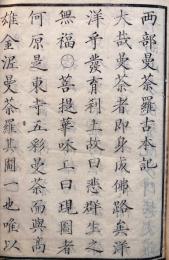 両部曼荼羅古本記
大哉曼荼者即身成佛路矣洋
洋乎發育利上故曰悲群生之
無福㊂菩提華味工曰現圖者
何原是東寺五彩曼荼而與高
雄金泥曼荼羅其圖一也唯以